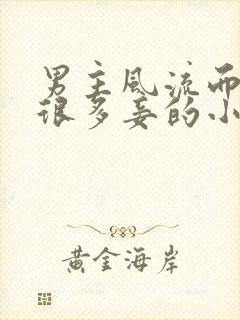 男主風流而
很多妾的小
黃金海岸